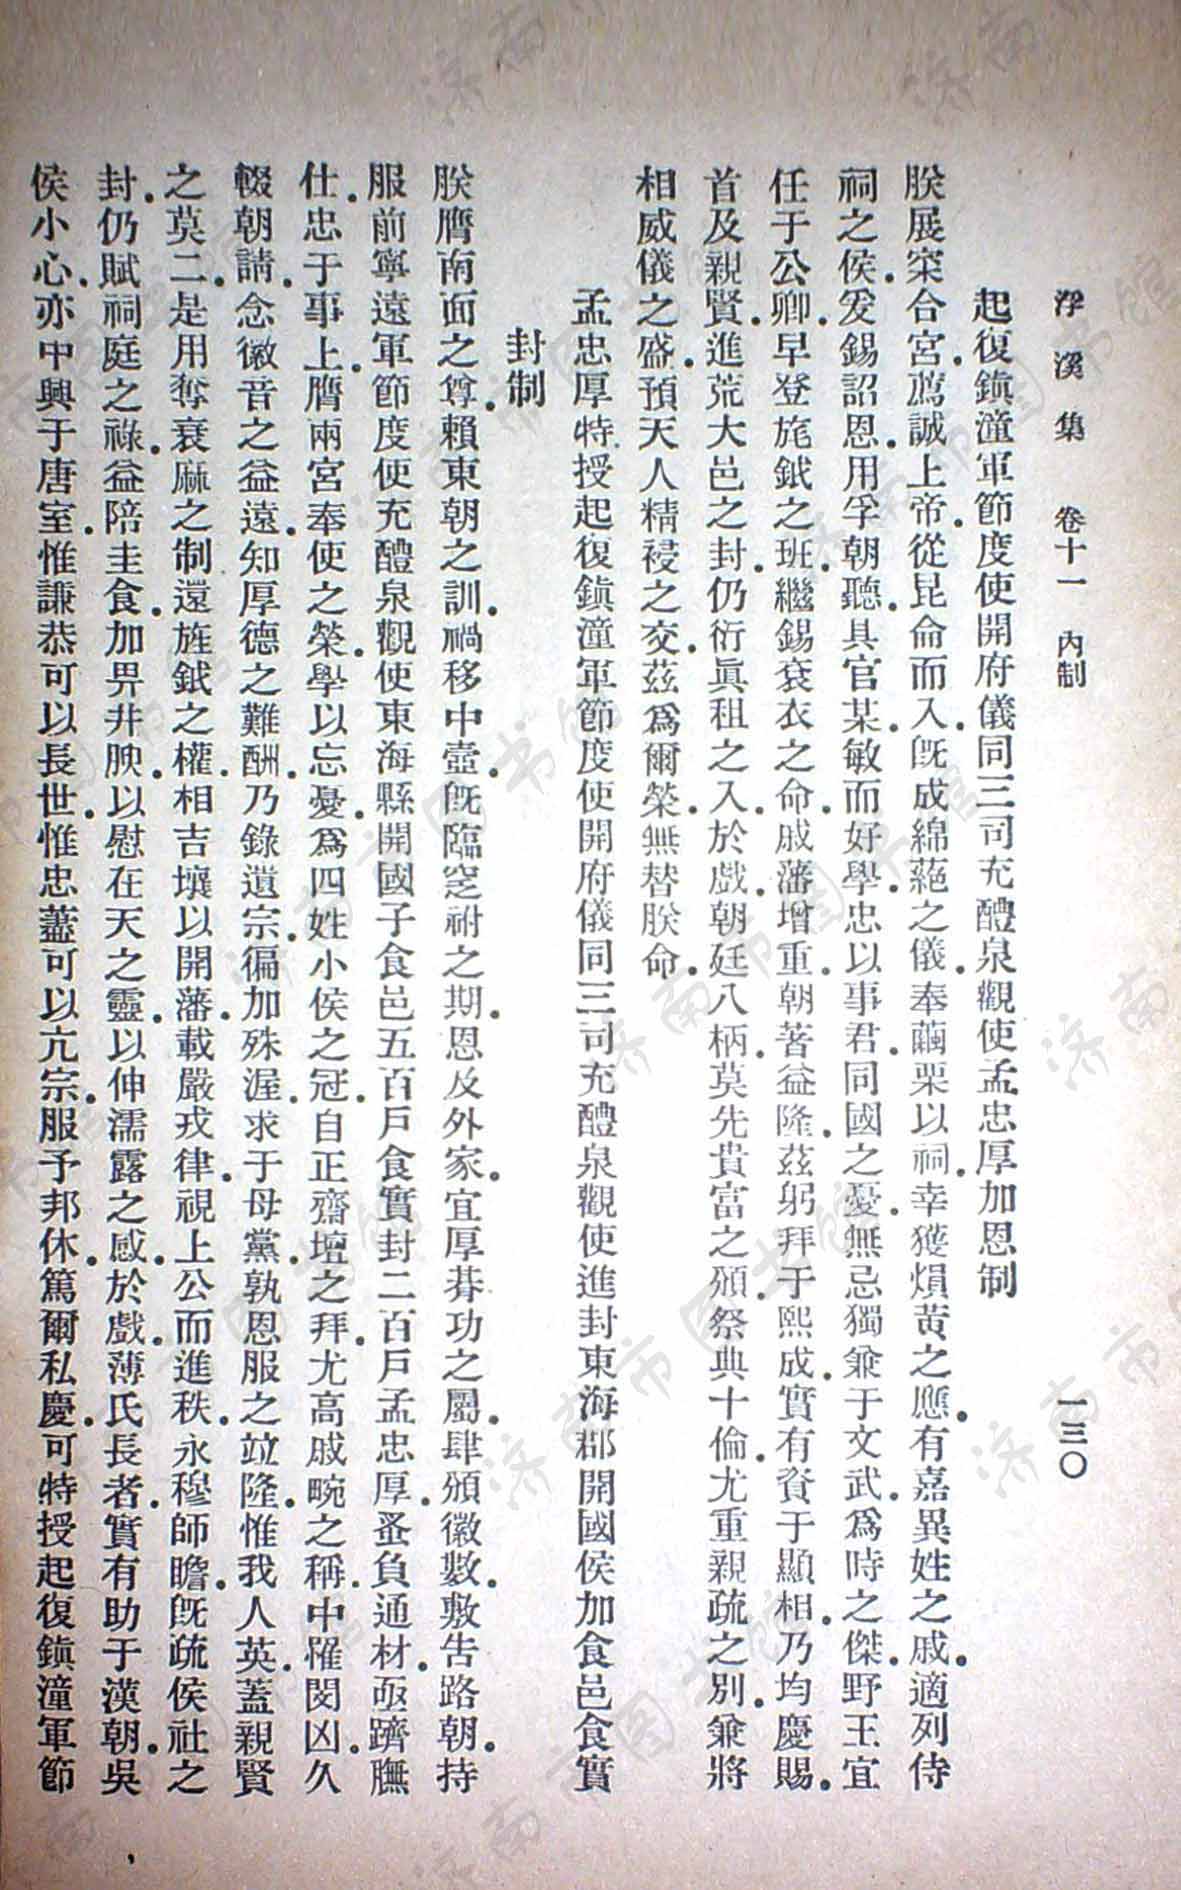 浮溪集　卷十一　內制　一三〇
起復鎭潼軍節度使開府儀同三司充醴泉觀使孟忠厚加恩制
朕展寀合宮。薦誠上帝。從昆侖而入。旣成綿蕝之儀。奉繭栗以祠。幸獲熉黃之應。有嘉異姓之戚。適列侍
祠之侯。爰錫詔恩。用孚朝聽。具官某敏而好學。忠以事君。同國之憂。無忌獨兼于文武。爲時之傑。野王宜
任于公卿。早登旄鉞之班。繼錫袞衣之命。戚藩增重。朝著益隆。茲躬拜于熙成。實有資于顯相。乃均慶賜。
首及親賢。進荒大邑之封。仍衍眞租之入。於戲。朝廷八柄。莫先貴富之頒。祭典十倫。尤重親疏之別。兼將
相威儀之盛。預天人精祲之交。茲爲爾榮。無替朕命。
孟忠厚特授起復鎭潼軍節度使開府儀同三司充醴泉觀使進封東海郡開國侯加食邑食實
封制
朕膺南面之尊。賴東朝之訓。禍移中壼。旣臨窆祔之期。恩及外家。宜厚朞功之屬。肆頒徽數。敷吿路朝。持
服前寧遠軍節度使充醴泉觀使東海縣開國子食邑五百戶食實封二百戶孟忠厚。蚤負通材。亟躋膴
仕。忠于事上。膺兩宮奉使之榮。學以忘憂。爲四姓小侯之冠。自正齋壇之拜。尤高戚畹之稱。中罹閔凶。久
輟朝請。念徽音之益遠。知厚德之難酬。乃錄遺宗。徧加殊渥。求于母黨。孰恩服之竝隆。惟我人英。蓋親賢
之莫二。是用奪衰麻之制。還旌鉞之權。相吉壤以開藩。載嚴戎律。視上公而進秩。永穆師瞻。旣疏侯社之
封。仍賦祠庭之祿。益陪圭食。加畀井腴。以慰在天之靈。以伸濡露之感。於戲。薄氏長者。實有助于漢朝。吳
侯小心。亦中興于唐室。惟謙恭可以長世。惟忠藎可以亢宗。服予邦休。篤爾私慶。可特授起復鎭潼軍節